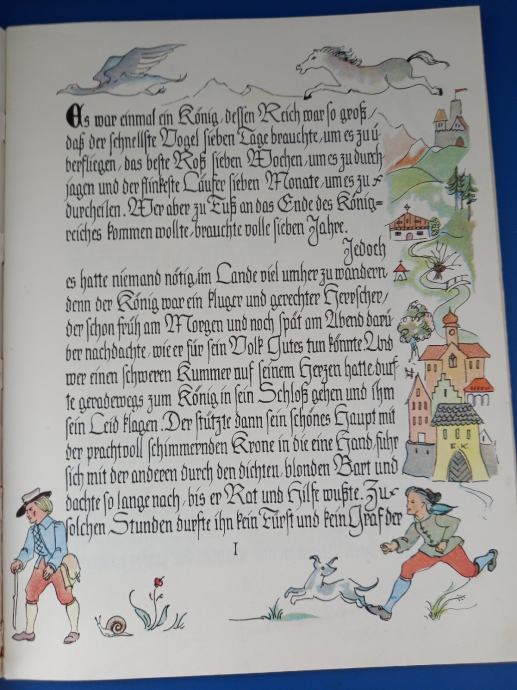 Es war einmal ein König, dessen Reich war so groß,
daß der schnellste Vogel sieben Tage brauchte, um es zu ü
berfliegen, das beste Roß sieben Wochen, um es zu durch
jagen und der flinkeste Läufer sieben Monate, um es zu
durcheilen. Wer aber zu Fuß an das Ende des König=
reiches kommen wollte, brauchte volle sieben Jahre.
Jedoch
es hatte niemand nötig, im Lande viel umher zu wandern
denn der König war ein kluger und gerechter Herrscher,
der schon früh am Morgen und noch spät am Abend darü
ber nachdachte, wie er für sein Volk Gutes tun könnte Und
wer einen schweren Kummer auf seinem Herzen hatte, durf
te geradewegs zum König in sein Schloß gehen und ihm
sein Leid klagen. Der stützte dann sein schönes Haupt mit
der prachtvoll schimmernden Krone in die eine Hand, fuhr
sich mit der anderen durch den dichten, blonden Bart und
dachte so lange nach, bis er Rat und Hilfe wußte. Zu
solchen Stunden durfte ihn kein Fürst und kein Graf der
E.K
I